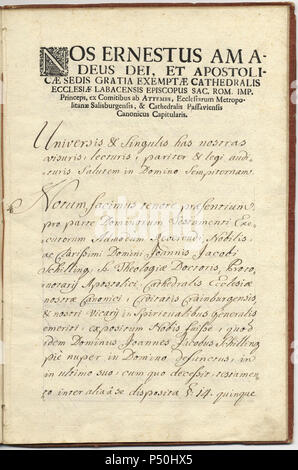 NOS ERNESTUS AMA
DEUS DEI, ET APOSTOLI-
CÆ SEDIS GRATIA EXEMPTÆ CATHEDRALIS
ECCLESIÆ LABACENSIS EPISCOPUS SAC. ROM. IMP.
Princeps, ex Comitibus ab ATTEMIS, Ecclesiarum Metropo-
litanæ Salisburgensis, & Cathedralis Passaviensis
Canonicus Capitularis.
Universis & Singulis has nostras
visuris, lecturis, pariter & legi audi-
turis Salutem in Domino Sempiternam.
Notum facimus tenore præsentium,
pro parte Dominorum Testamenti Exe-
cutorum Reverendi, Nobilis
ac Clarissimi Domini Joannis Jacobi
Schilling, Ss Theologiæ Doctoris, Proto-
notarij Apostolici, Cathedralis Ecclesiæ
nostræ Canonici, Crainburgensis,
& nostri Vicarij in Spiritualibus Generalis
emeriti, expositum Nobis fuisse, quod
idem Dominus Joannes Jacobus Schilling
piè nuper in Domino defunctus, in
in ultimo suo, cum quo decessit, testamen-
to inter alia disposita §. 14. quinque
alamy
Image ID: P50HX5
www.alamy.com